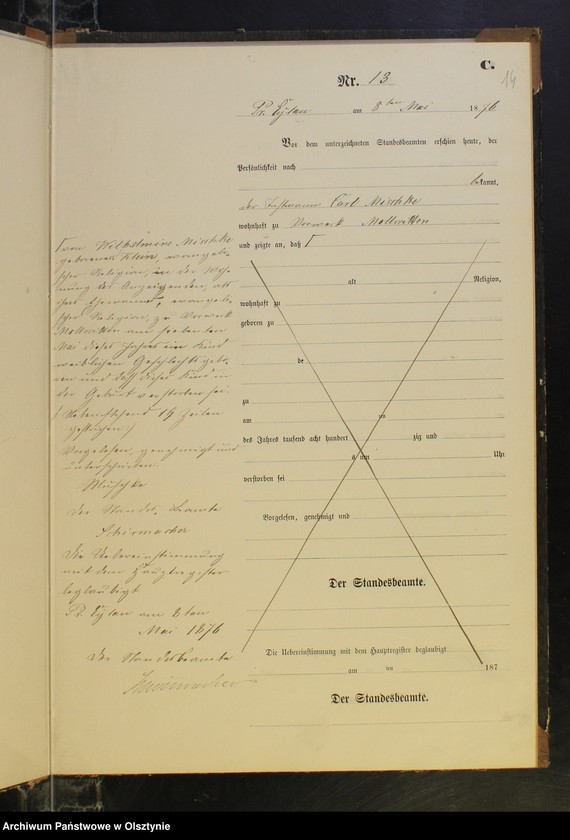 C.
14
Nr. 13
Pr. Eylau am 8ten Mai 1876
Vor dem unterzeichneten Standesbeamten erschien heute, der
Persönlichkeit nach
bekannt,
der Carl Mischke
wohnhaft zu Vorwerk Mollwitten
und zeigte an, daß Γ
alt Religion,
wohnhaft zu
geboren zu
de
zu
am ten
des Jahres tausend acht hundert zig und
um Uhr
verstorben sei
Vorgelesen, genehmigt und
Der Standesbeamte.
Die Uebereinstimmung mit dem Hauptregister beglaubigt
am ten 187
Der Standesbeamte.
Γ von Wilhelmine Mischke
geborenen Klein, evangeli-
scher Religion, in der Woh-
nung des Anzeigenden, als
ihres Ehemannes, evangeli-
scher Religion, zu Vorwerk
Mollwitten am siebenten
Mai dieses Jahres ein Kind
weiblichen Geschlechts gebo-
ren und daß dieses Kind in
der Geburt verstorben sei.
(Nebenstehend 14 Zeilen
gestrichen.)
Vorgelesen, genehmigt und
unterschrieben
Mischke
Der Standesbeamte
Schirmacher
Die Uebereinstimmung
mit dem Hauptregister
beglaubigt
Pr. Eylau am 8ten
Mai 1876
Der Standesbeamte
Schirmacher
Archiwum Państwowe w Olsztynie